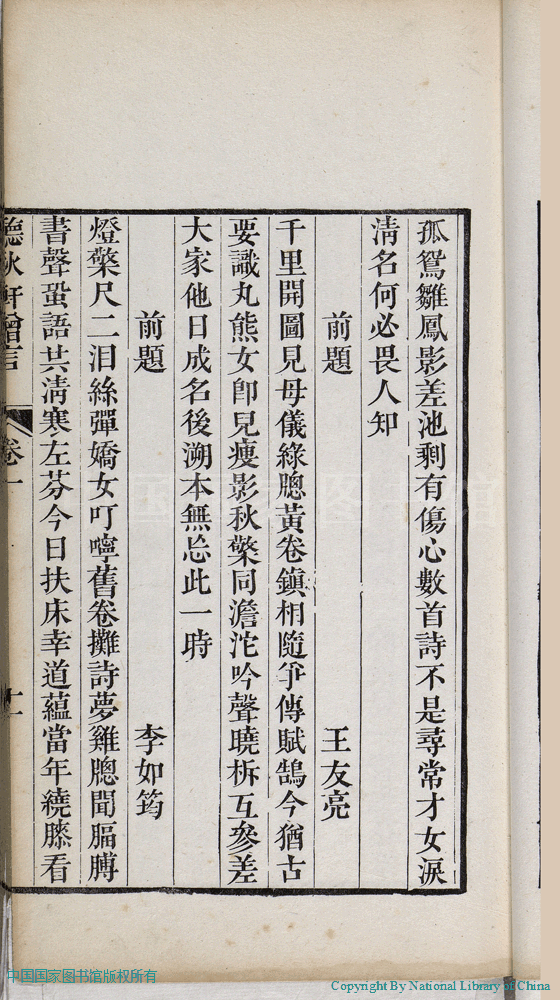 孤鴛雛鳳影差池剩有傷心數首詩不是尋常才女淚
清名何必畏人知
前題 王友亮
千里開圖見母儀綠牕黃卷鎭相隨爭傳賦鵠今猶古
要識丸熊女卽兒瘦影秋檠同澹沱吟聲曉柝互參差
大家他日成名後溯本無忘此一時
前題 李如筠
燈檠尺二泪絲彈嬌女叮嚀舊卷攤詩夢雞牕聞膈膊
書聲蛩語共清寒左芬今日扶床幸道蘊當年繞膝看
聽秋軒贈言 卷一 十一
中国国家图书馆版权所有
Copyright By National Library of China